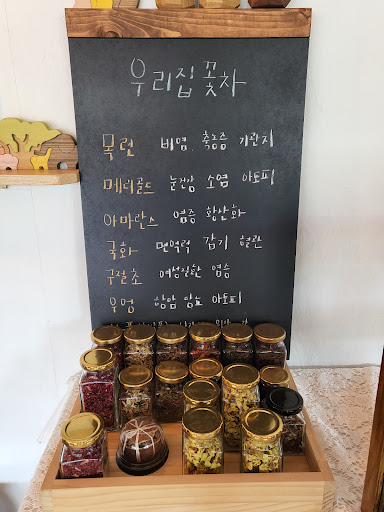 우리집 꽃차
목련 비염 축농증 기관지
메리골드 눈건강 소염 아토피
아마란스 염증 항산화
국화 면역력 감기 혈관
구절초 여성질환 염증
우엉 항암 당뇨 아토피